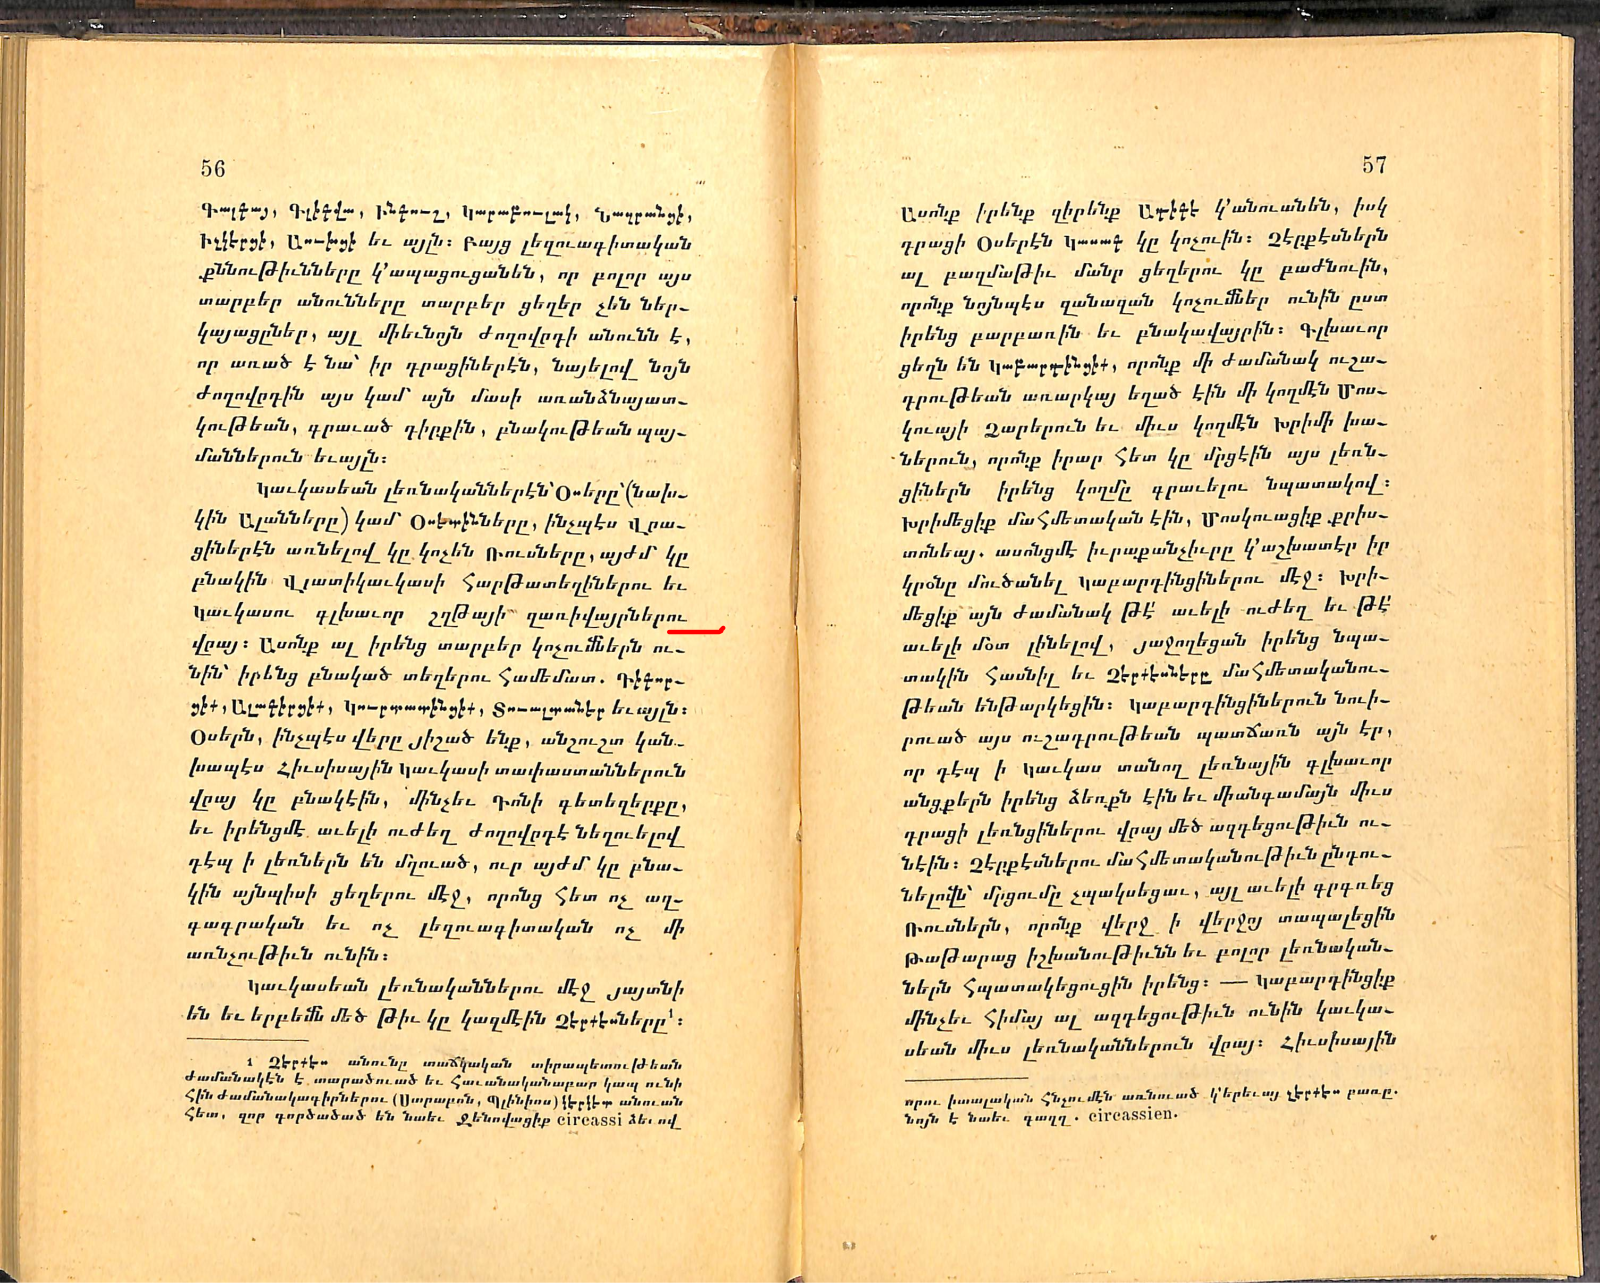 56
Գալգայ, Գլիգվա, Ինգուշ, Կարաբուլակ, Նազրանցի,
Իչկերցի, Աուխցի եւ այլն։ Բայց լեզուագիտական
քննութիւնները կ՚ապացուցանեն, որ բոլոր այս
տարբեր անունները տարբեր ցեղեր չեն ներ-
կայացըներ, այլ միեւնոյն ժողովրդի անունն է,
որ առած է նա՝ իր դրացիներէն, նայելով նոյն
ժողովրդին այս կամ այն մասի առանձնայատ-
կութեան, գրաւած դիրքին, բնակութեան պայ-
մաններուն եւայլն։
Կաւկասեան լեռնականներէն՝ Օսերը՝ (նախ-
կին Ալանները) կամ Օսետինները, ինչպէս Վրա-
ցիներէն առնելով կը կոչեն Ռուսները, այժմ կը
բնակին Վլատիկաւկասի Հարթատեղիներու եւ
Կաւկասու գլխաւոր շղթայի զառիվայրներու
վրայ։ Ասոնք ալ իրենց տարբեր կոչումներն ու-
նին՝ իրենց բնակած տեղերու Համեմատ. Դիգոր-
ցիք, Ալագիրցիք, Կուրտատինցիք, Տուալտաներ եւայլն։
Օսերն, ինչպէս վերը յիշած ենք, անշուշտ կան-
խապէս Հիւսիսային Կաւկասի տափաստաններուն
վրայ կը բնակէին, մինչեւ Դոնի գետեզերքը,
եւ իրենցմէ աւելի ուժեղ ժողովրդէ նեղուելով
դէպ ի լեռներն են մղուած, ուր այժմ կը բնա-
կին այնպիսի ցեղերու մէջ, որոնց Հետ ոչ ազ-
գագրական եւ ոչ լեզուագիտական ոչ մի
առնչութիւն ունին։
Կաւկասեան լեռնականներու մէջ յայտնի
են եւ երբեմն մեծ թիւ կը կազմէին Չէրքէսները¹։
1 Չէրքէս անունը տաճկական տիրապետութեան
ժամանակէն է տարածուած եւ Հաւանականաբար կապ ունի
Հին ժամանակագիրներու (Ստրաբոն, Պլինիոս) կերկետ անուան
Հետ, զոր գործածած են նաեւ Ջենովացիք circassi ձեւով
57
Ասոնք իրենք զիրենք Ադիգէ կ՚անուանեն, իսկ
դրացի Օսերէն Կասագ կը կոչուին։ Չէրքէսներն
ալ բազմաթիւ մանր ցեղերու կը բաժնուին,
որոնք նոյնպէս զանազան կոչումներ ունին ըստ
իրենց բարբառին եւ բնակավայրին։ Գլխաւոր
ցեղն են Կաբարդինցիք, որոնք մի ժամանակ ուշա-
դրութեան առարկայ եղած էին մի կողմէն Մոս-
կուայի Ձարերուն եւ միւս կողմէն Խրիմի խա-
ներուն, որոնք իրար Հետ կը մրցէին այս լեռն-
ցիներն իրենց կողմը գրաւելու նպատակով։
Խրիմեցիք մաՀմետական էին, Մոսկուացիք քրիս-
տոնեայ. ասոնցմէ իւրաքանչիւրը կ՚աշխատէր իր
կրօնը մուծանել Կաբարդինցիներու մէջ։ Խրի-
մեցիք այն ժամանակ թէ՛ աւելի ուժեղ եւ թէ՛
աւելի մօտ լինելով, յաջողեցան իրենց նպա-
տակին Հասնիլ եւ Չէրքէսները մաՀմետականու-
թեան ենթարկեցին։ Կաբարդինցիներուն նուի-
րուած այս ուշադրութեան պատճառն այն էր,
որ դէպ ի Կաւկաս տանող լեռնային գլխաւոր
անցքերն իրենց ձեռքն էին եւ միանգամայն միւս
դրացի լեռնցիներու վրայ մեծ ազդեցութիւն ու-
նէին։ Չէրքէսներու մաՀմետականութիւն ընդու-
նելովն՝ մրցումը չպակսեցաւ, այլ աւելի գրգռեց
Ռուսներն, որոնք վերջ ի վերջոյ տապալեցին
Թաթարաց իշխանութիւնն եւ բոլոր լեռնական-
ներն Հպատակեցուցին իրենց։ — Կաբարդինցիք
մինչեւ Հիմայ ալ ազդեցութիւն ունին կաւկա-
սեան միւս լեռնականներուն վրայ։ Հիւսիսային
որու իտալական Հնչումէն առնուած կ՚երեւայ չէրքէս բառը.
նոյն է նաեւ գաղղ. circassien.